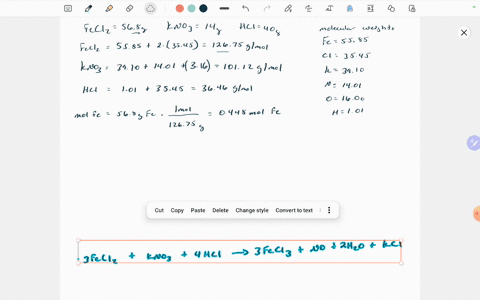 FeCl₂ = 56.8g KNO₃ = 14g HCl = 40g
FeCl₂ = 55.85 + 2·(35.45) = 126.75 g/mol
KNO₃ = 39.10 + 14.01 + (3·16) = 101.12 g/mol
HCl = 1.01 + 35.45 = 36.46 g/mol
mol Fe = 56.8g Fe · 1mol / 126.75 g = 0.448 mol Fe
molecular weights
Fe = 55.85
Cl = 35.45
K = 39.10
N = 14.01
O = 16.00
H = 1.01
Cut Copy Paste Delete Change style Convert to text
3FeCl₂ + KNO₃ + 4HCl → 3FeCl₃ + NO + 2H₂O + KCl